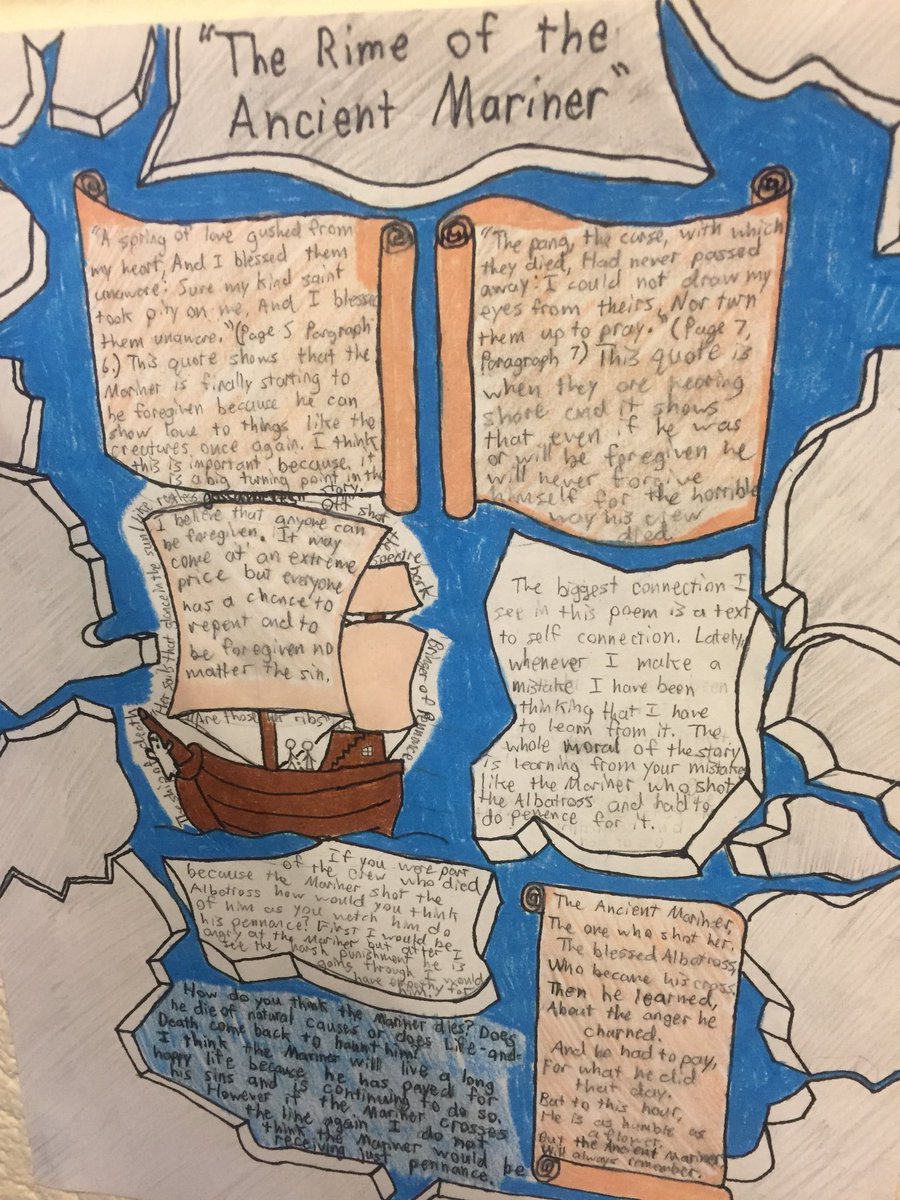 "The Rime of the
Ancient Mariner"
"A spring of love gushed from
my heart, And I blessed them
unaware: Sure my kind saint
took pity on me, And I blessed
them unaware." (Page 5 Paragraph
6.) This quote shows that the
Mariner is finally starting to
be foregiven because he can
show love to things like the
creatures once again. I think
this is important because, it
is a big turning point in the
story.
"The pang, the curse, with which
they died, Had never passed
away: I could not draw my
eyes from theirs, Nor turn
them up to pray." (Page 7,
Paragraph 7) This quote is
when they are nearing
shore and it shows
that even if he was
or will be foregiven he
will never forgive
himself for the horrible
way his crew
died
I believe that anyone can
be foregiven. It may
come at an extreme
price but everyone
has a chance to
repent and to
be foregiven no
matter the sin.
Her sails that glance in the sun, like restless
Off shot the spectre bark
Bringer of Pennance
"Are those her ribs"
The ship of death
The biggest connection I
see in this poem is a text
to self connection. Lately,
whenever I make a
mistake I have been
thinking that I have
to learn from it. The
whole moral of the story
is learning from your mistakes
like the Mariner who shot
the Albatross and had to
do penence for it.
If you were part
of the crew who died
because the Mariner shot the
Albatross how would you think
of him as you watch him do
his pennance? First I would be
angry at the Mariner but after I
see the harsh punishment he is
going through I would
have empathy for
him.
How do you think the Mariner dies? Does
he die of natural causes or does Life-and-
Death come back to haunt him?
I think the Mariner will live a long
happy life because he has payed for
his sins and is continuing to do so.
However if the Mariner crosses
the line again I do not
think the Mariner would be
receiving just pennance.
The Ancient Mariner,
The one who shot her.
The blessed Albatross,
Who became his cross.
Then he learned,
About the anger he
churned.
And he had to pay,
For what he did
that day.
But to this hour,
He is as humble as
a flower.
But the Ancient Mariner
will always remember.